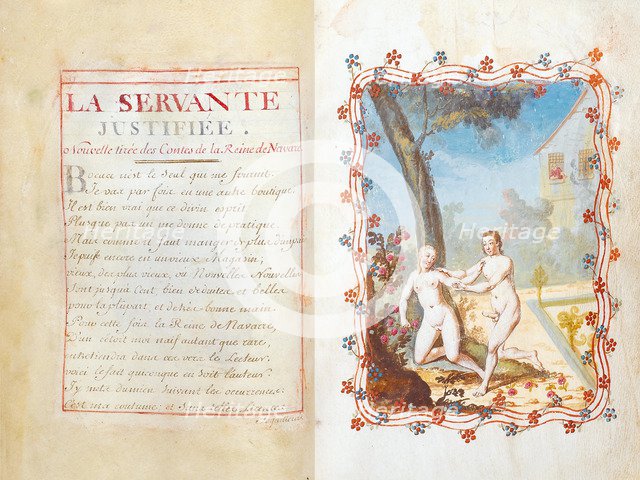 LA SERVANTE
JUSTIFIÉE.
Nouvelle tirée des Contes de la Reine de Navarre
Bocace n'est le Seul qui me fournit.
Je vas par fois en une autre boutique.
Il est bien vrai que ce divin esprit
Plus que pas un me donne de pratique.
Mais comme il faut manger de plus d'un pain
Je puise encore en un vieux Magasin;
vieux, des plus vieux, où Nouvelles Nouvelles
Sont jusqu'à Cent, bien deduites et belles
pour la plûpart, et de très bonne main.
Pour cette fois la Reine de Navarre,
D'un c'étoit moi naïf autant que rare,
entretiendra dans ces vers le Lecteur.
voici le fait quiconque en Soit l'auteur.
J'y mets du mien Suivant les occurrences:
C'est ma coutume; et Sans telles Licences
Heritage
Heritage
Heritage
Heritage
Images
Images